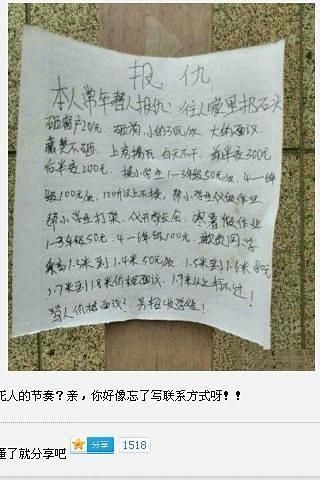 报仇
本人常年替人报仇!往人家里扔石头
砸窗户20元 砸狗,小的30元/次 大的面议
藏獒不砸 上房揭瓦 白天不干 前半夜300元
后半夜200元 揍小学生1-3年级50元/次 4-6年
级100元/次 120斤以上不揍,帮小学生做作业
帮小学生打架 仪开家长会 寒暑假作业
1-3年级50元 4-6年级100元 欺负同学
身高1.3米到1.4米50元/次 1.5米到1.6米80元
1.7米到1.8米价格面议 1.9米以上打不过!
骂人价格面议!
花人的节奏?亲,你好像忘了写联系方式呀!!
懂了就分享吧 分享 1518